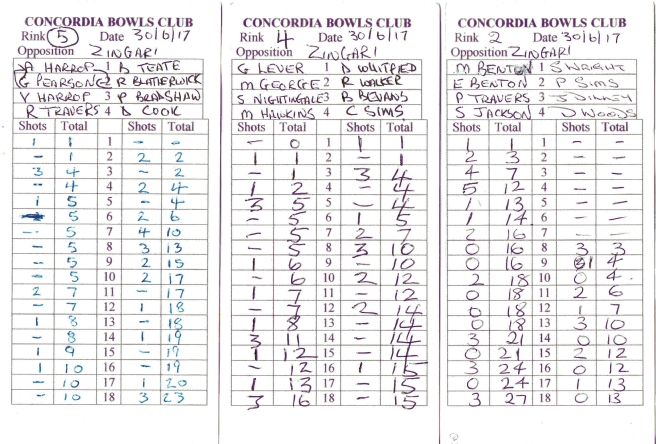 CONCORDIA BOWLS CLUB
Rink 5 Date 30/6/17
Opposition ZINGARI
A HARROP 1 A TEATE
G PEARSON 2 R BLATHERWICK
V HARROP 3 P BRADSHAW
R TRAVERS 4 D COOK
Shots Total Shots Total
1 1 1 - 0
- 1 2 2 2
3 4 3 - 2
- 4 4 2 4
1 5 5 - 4
- 5 6 2 6
- 5 7 4 10
- 5 8 3 13
- 5 9 2 15
- 5 10 2 17
2 7 11 - 17
- 7 12 1 18
1 8 13 - 18
- 8 14 1 19
1 9 15 - 19
1 10 16 - 19
- 10 17 1 20
- 10 18 3 23
CONCORDIA BOWLS CLUB
Rink 4 Date 30/6/17
Opposition ZINGARI
G LEVER 1 D
M GEORGE 2 R WALKER
S NIGHTINGALE 3 B BEVANS
M HAWKINS 4 C SIMS
Shots Total Shots Total
- 0 1 1 1
1 1 2 - 1
- 1 3 3 4
1 2 4 - 4
3 5 5 - 4
- 5 6 1 5
- 5 7 2 7
- 5 8 3 10
1 6 9 - 10
- 6 10 2 12
1 7 11 - 12
- 7 12 2 14
1 8 13 - 14
3 11 14 - 14
1 12 15 - 14
- 12 16 1 15
1 13 17 - 15
3 16 18 - 15
CONCORDIA BOWLS CLUB
Rink 2 Date 30/6/17
Opposition ZINGARI
M BENTON 1 S WRIGHT
E BENTON 2 P SIMS
P TRAVERS 3 S
S JACKSON 4 D WOODS
Shots Total Shots Total
1 1 1 - -
2 3 2 - -
4 7 3 - -
5 12 4 - -
1 13 5 - -
1 14 6 - -
2 16 7 - -
0 16 8 3 3
0 16 9 1 4
2 18 10 0 4
0 18 11 2 6
0 18 12 1 7
0 18 13 3 10
3 21 14 0 10
0 21 15 2 12
3 24 16 0 12
0 24 17 1 13
3 27 18 0 13